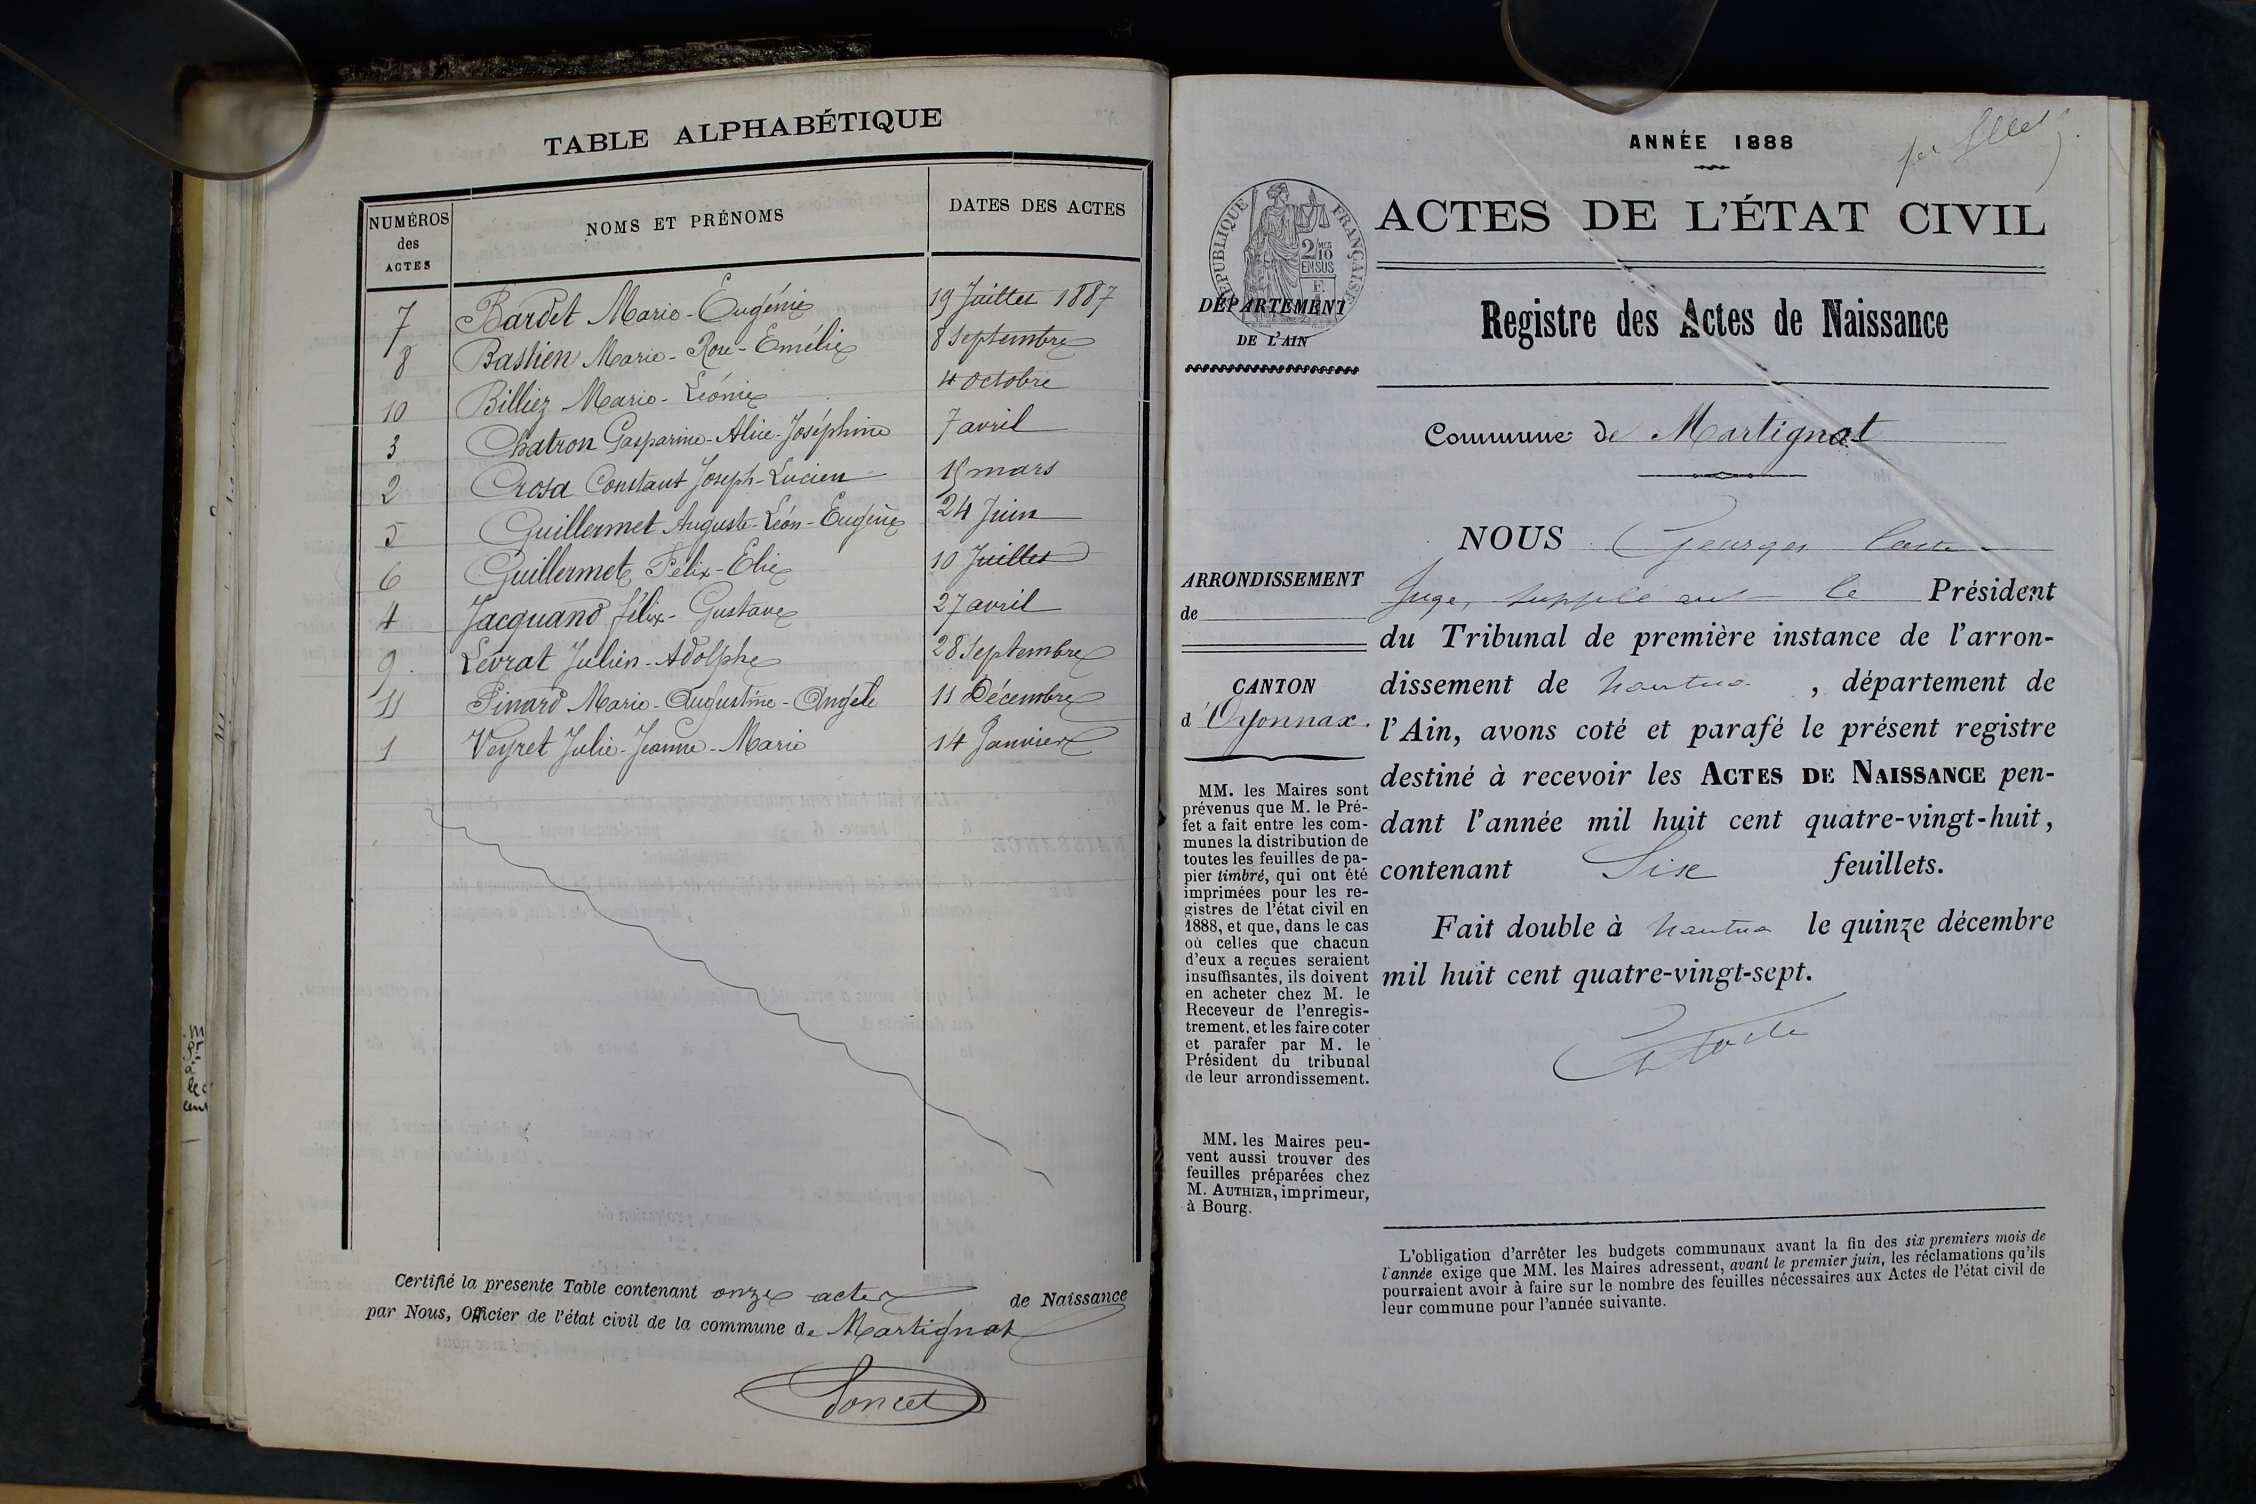 TABLE ALPHABÉTIQUE
NUMÉROS des ACTES
NOMS ET PRÉNOMS
DATES DES ACTES
7 Bardet Marie-Eugénie 19 Juillet 1887
8 Bastien Marie-Rose-Emélie 8 Septembre
10 Billiez Marie-Léonie 4 octobre
3 Chatron Gasparine-Alice-Joséphine 7 avril
2 Crosa Constant Joseph-Lucien 15 mars
5 Guillermet Auguste-Léon-Eugène 24 Juin
6 Guillermet Félix-Elie 10 Juillet
4 Jacquand félix-Gustave 27 avril
9 Levrat Julien-Adolphe 28 Septembre
11 Pinard Marie-Augustine-Angèle 11 Décembre
1 Veyret Julie-Jeanne-Marie 14 Janvier
Certifié la presente Table contenant onze actes de Naissance
par Nous, Officier de l'état civil de la commune de Martignat
Poncet
ANNÉE 1888
ACTES DE L'ÉTAT CIVIL
RÉPUBLIQUE FRANÇAISE
2/10 EN SUS
DÉPARTEMENT
DE L'AIN
Registre des Actes de Naissance
Commune de Martignat
ARRONDISSEMENT
de
CANTON
d'Oyonnax.
MM. les Maires sont
prévenus que M. le Pré-
fet a fait entre les com-
munes la distribution de
toutes les feuilles de pa-
pier timbré, qui ont été
imprimées pour les re-
gistres de l'état civil en
1888, et que, dans le cas
où celles que chacun
d'eux a reçues seraient
insuffisantes, ils doivent
en acheter chez M. le
Receveur de l'enregis-
trement, et les faire coter
et parafer par M. le
Président du tribunal
de leur arrondissement.
MM. les Maires peu-
vent aussi trouver des
feuilles préparées chez
M. AUTHIER, imprimeur,
à Bourg.
NOUS Georges
Juge, suppléant le Président
du Tribunal de première instance de l'arron-
dissement de Nantua, département de
l'Ain, avons coté et parafé le présent registre
destiné à recevoir les ACTES DE NAISSANCE pen-
dant l'année mil huit cent quatre-vingt-huit,
contenant Sise feuillets.
Fait double à Nantua le quinze décembre
mil huit cent quatre-vingt-sept.
L'obligation d'arrêter les budgets communaux avant la fin des six premiers mois de
l'année exige que MM. les Maires adressent, avant le premier juin, les réclamations qu'ils
pourraient avoir à faire sur le nombre des feuilles nécessaires aux Actes de l'état civil de
leur commune pour l'année suivante.